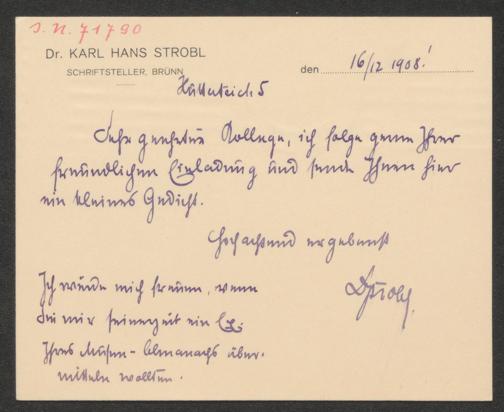 J.N. 71790
Dr. KARL HANS STROBL
SCHRIFTSTELLER, BRÜNN
den 16/12 1908!
Hutterteich 5
Sehr geehrter Kollege, ich folge gerne Ihrer
freundlichen Einladung und sende Ihnen hier
ein kleines Gedicht.
Hochachtend ergebenst
DStrobl.
Ich würde mich freuen, wenn
Sie mir seinerzeit ein Ex.
Ihres Musen-Almanachs über-
mitteln wollten.